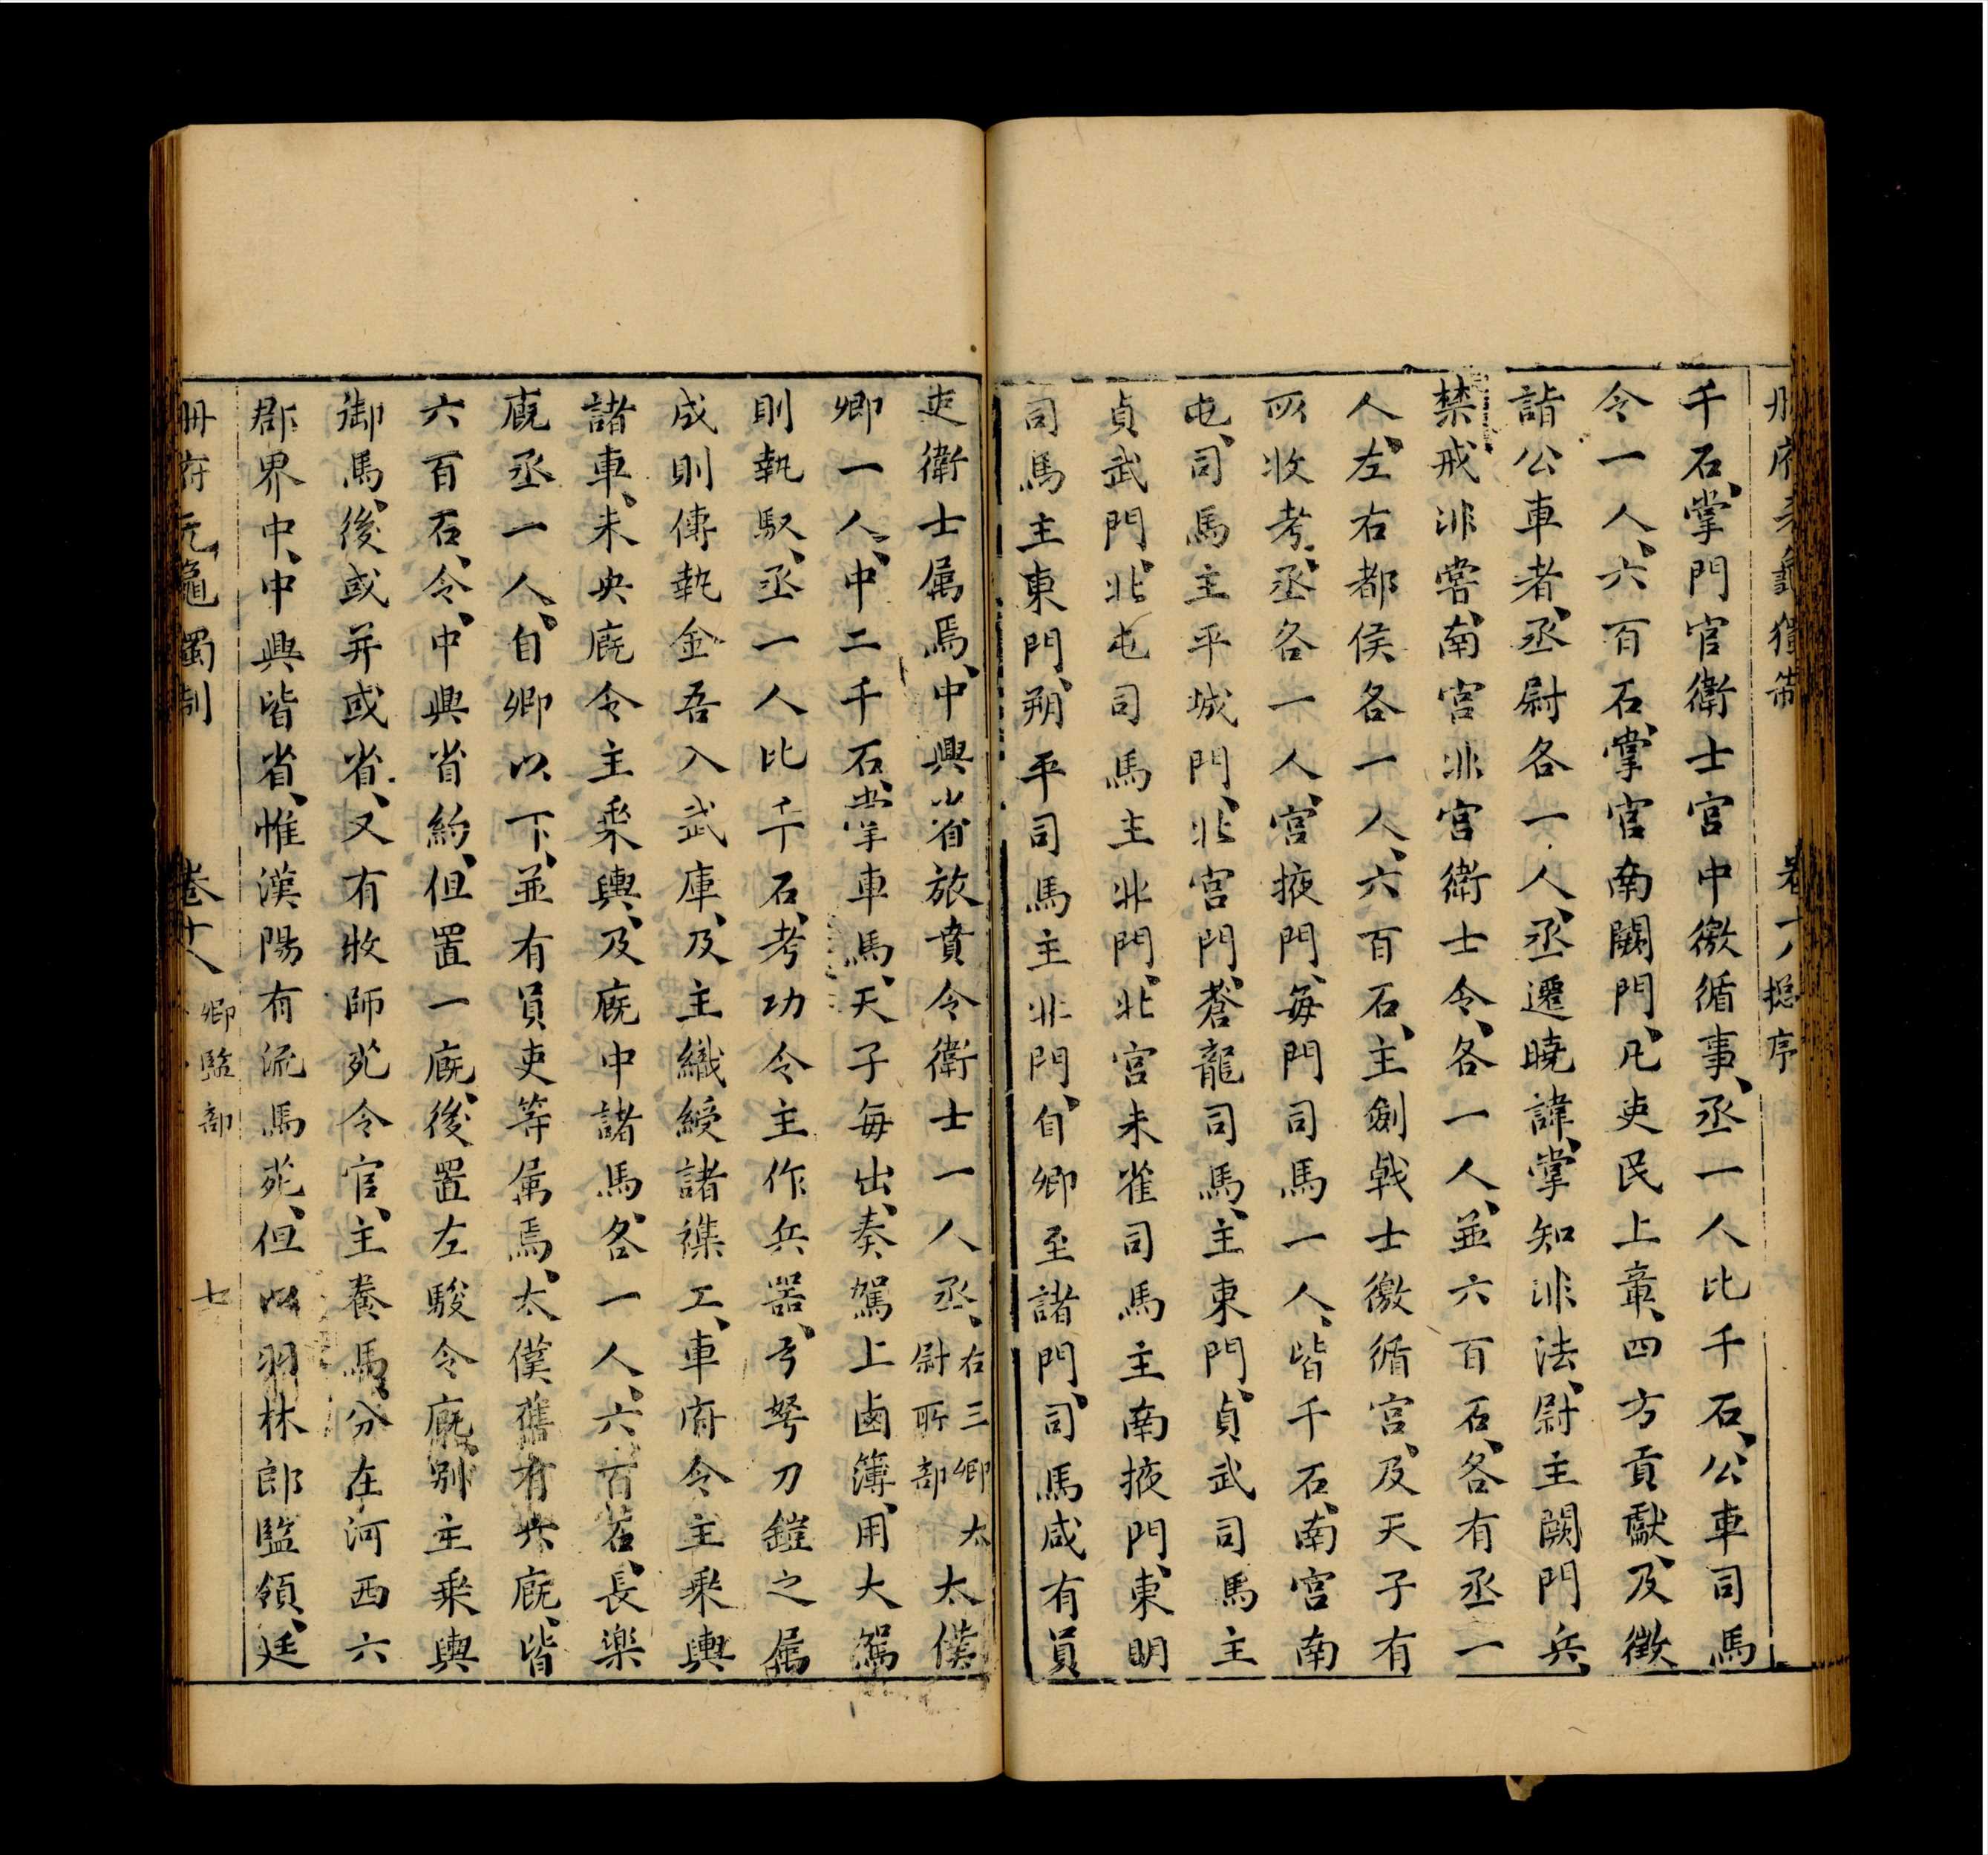 冊府元龜獨制 卷十八 總序
千石、掌門官衛士宮中徼循事、丞一人比千石、公車司馬
令一人、六百石、掌宮南闕門、凡吏民上章、四方貢獻、及徵
詣公車者、丞尉各一人、丞遷曉諱、掌知非法、尉主闕門兵、
禁戒非常、南宮北宮衛士令、各一人、並六百石、各有丞一
人、左右都侯各一人、六百石、主劍戟士徼循宮、及天子有
所收考、丞各一人、宮掖門、每門司馬一人、皆千石、南宮南
屯、司馬主平城門、北宮門、蒼龍司馬、主東門、貞武司馬主
貞武門、北屯司馬主北門、北宮朱雀司馬主南掖門、東明
司馬主東門、朔平司馬主北門、自卿至諸門、司馬咸有員
吏衛士属焉、中興省旅賁令衛士一人丞、右三卿太尉所部 太僕
卿一人、中二千石、掌車馬、天子每出、奏駕上鹵簿、用大駕
則執馭、丞一人比千石、考功令主作兵器、弓弩刀鎧之属
成則傳執金吾入武庫、及主織綬諸襍工、車府令主乘輿
諸車、未央廐令主乘輿、及廐中諸馬、各一人、六百石、長樂
廐丞一人、自卿以下、並有員吏等属焉、太僕舊有六廐、皆
六百石、令、中興省約、但置一廐、後置左駿令廐、別主乘輿
御馬、後或并或省、又有牧師苑令官、主養馬、分在河西六
郡界中、中興皆省、惟漢陽有流馬苑、但以羽林郎監領、廷
冊府元龜獨制 卷十八 卿監部 七